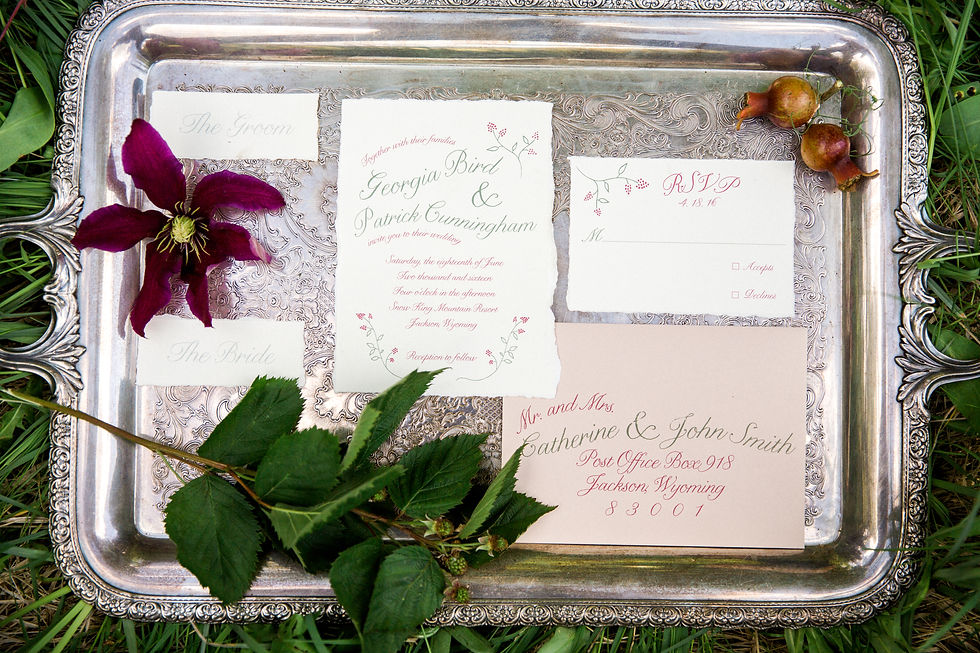 The Groom
The Bride
Together with their families
Georgia Bird
&
Patrick Cunningham
invite you to their wedding
Saturday, the eighteenth of June
Two thousand and sixteen
Four o'clock in the afternoon
Snow King Mountain Resort
Jackson, Wyoming
Reception to follow
RSVP
4.18.16
M
Accepts
Declines
Mr. and Mrs.
Catherine & John Smith
Post Office Box 918
Jackson, Wyoming
83001